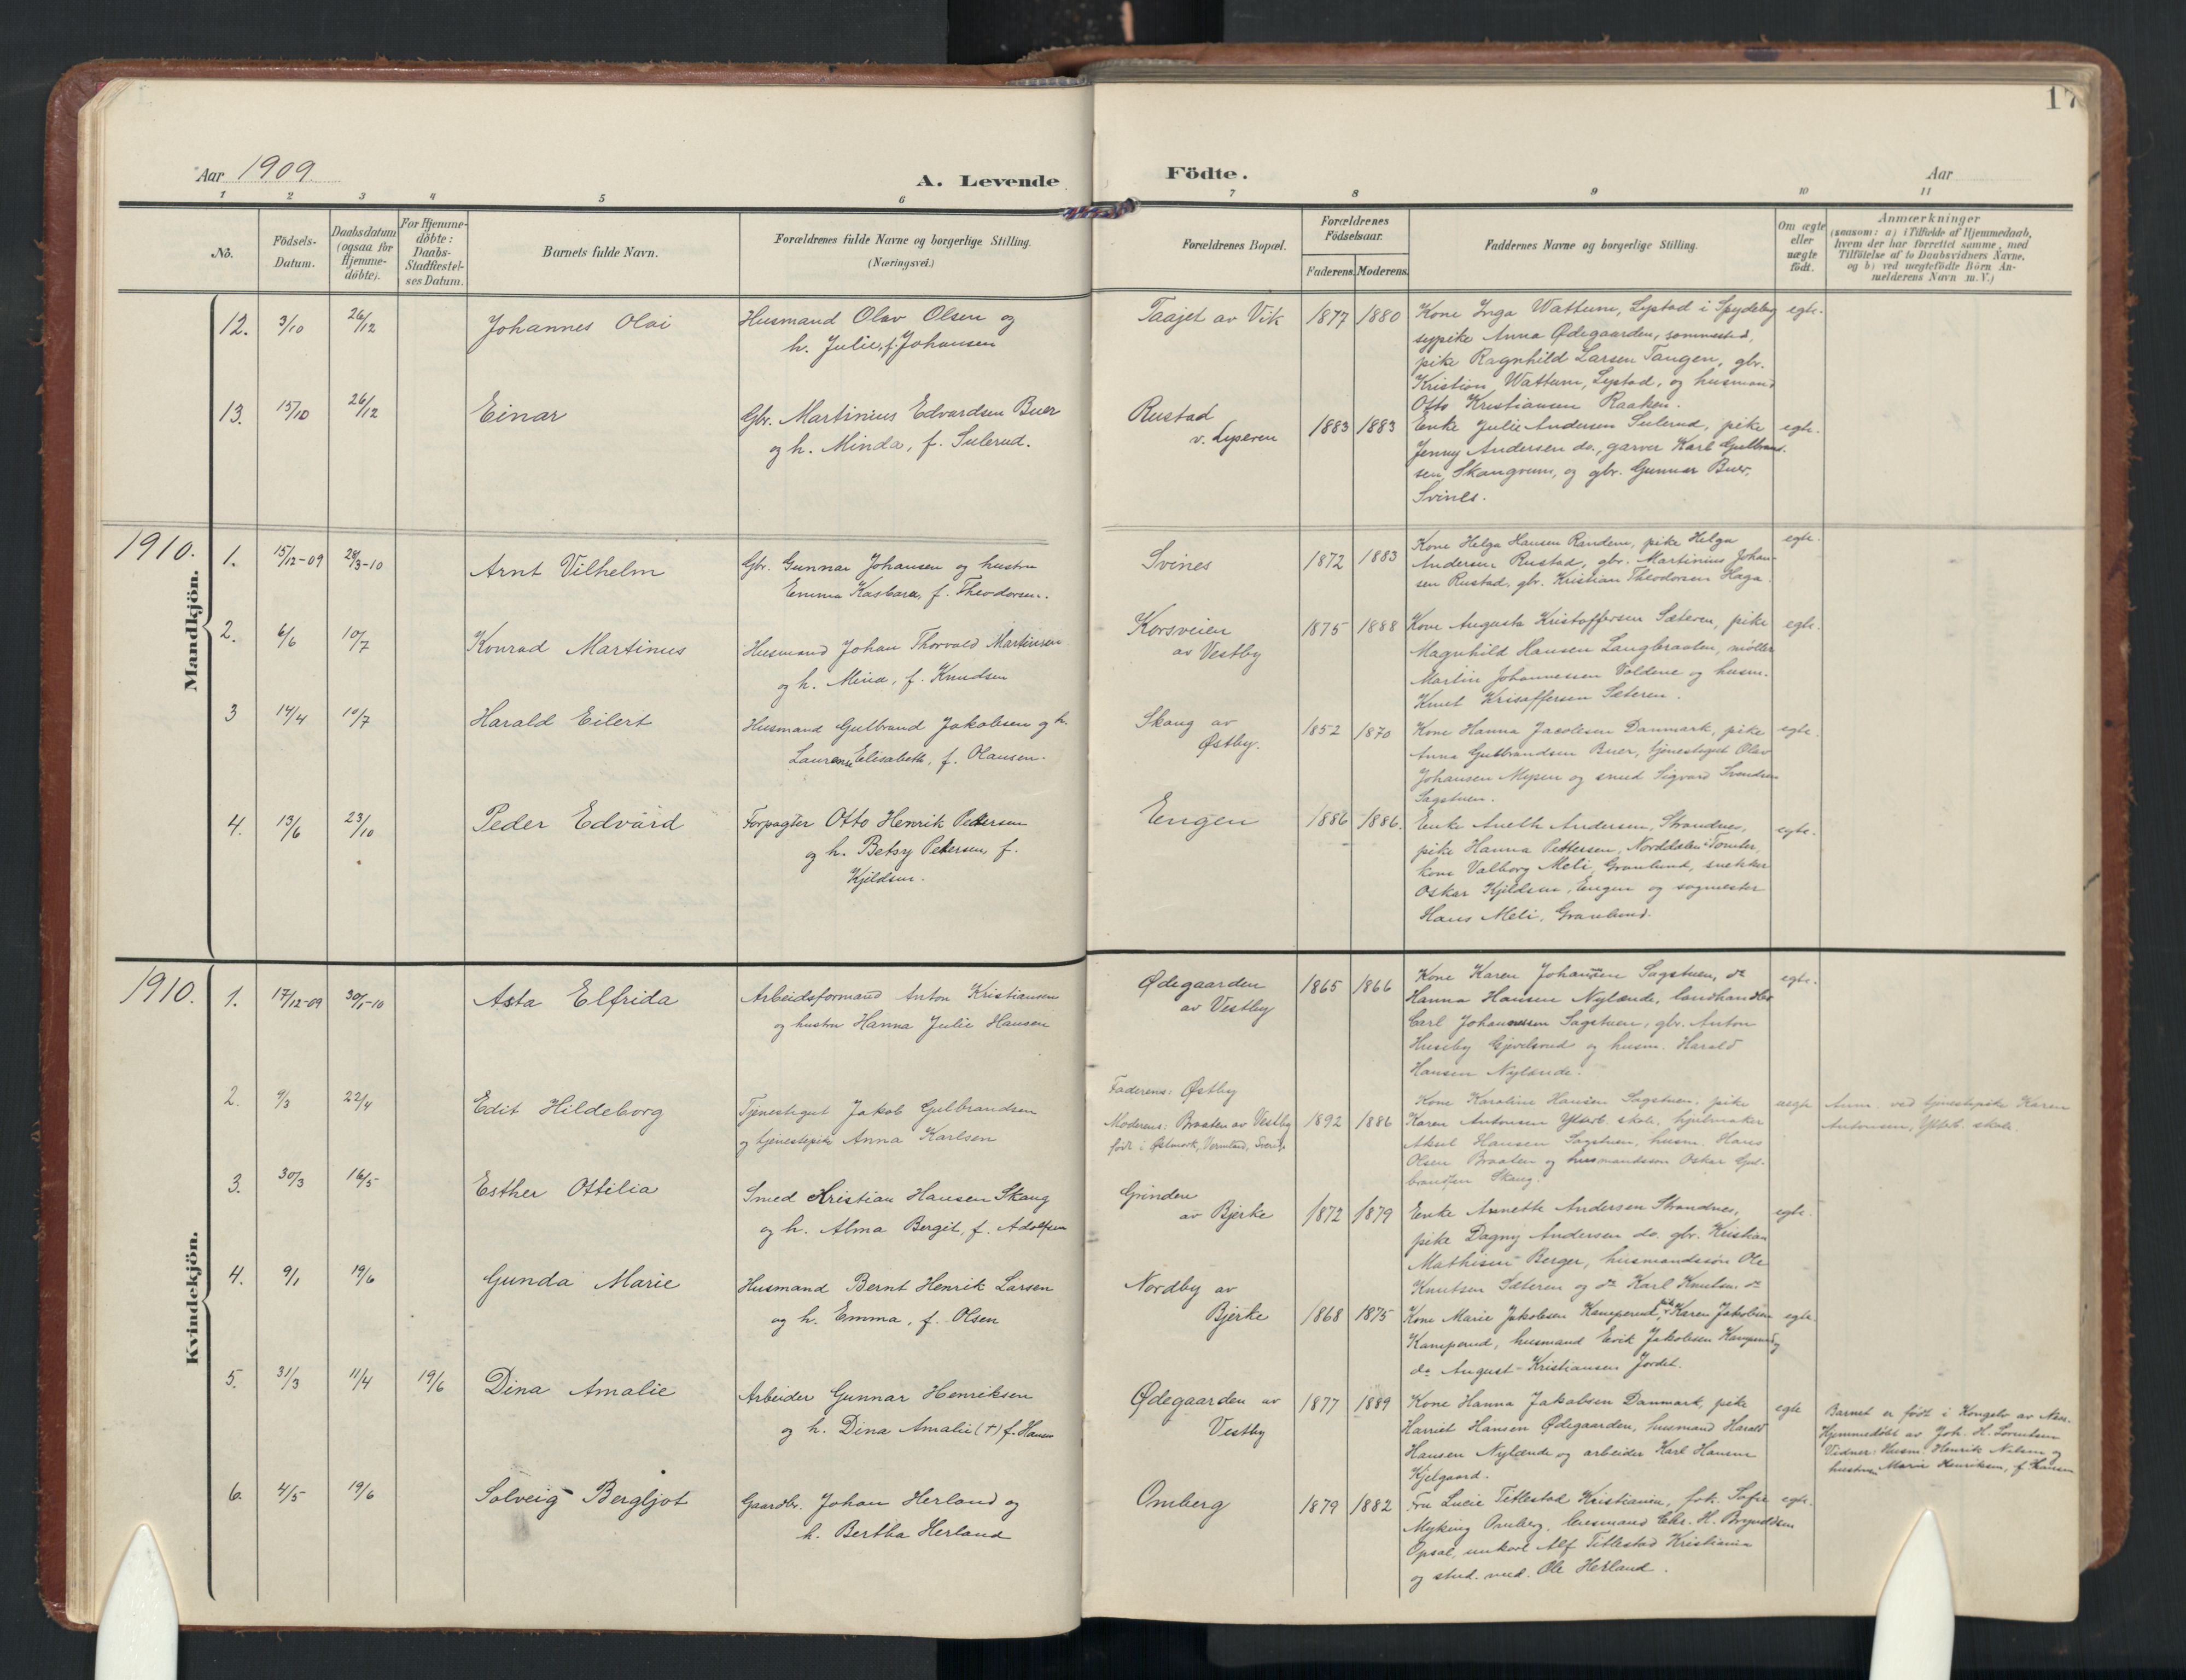 17
Aar 1909.
A. Levende
Födte.
Aar
1 2 3 4 5 6 7 8 9 10 11
No.
Födsels-
Datum.
Daabsdatum
(ogsaa for
Hjemme-
döbte).
For Hjemme-
döbte:
Daabs-
Stadfæstel-
ses Datum.
Barnets fulde Navn.
Forældrenes fulde Navne og borgerlige Stilling.
(Næringsvei.)
Forældrenes Bopæl.
Forældrenes
Födselsaar.
Faderens. Moderens.
Faddernes Navne og borgerlige Stilling.
Om ægte
eller
uægte
födt.
Anmærkninger
(saasom: a) i Tilfælde af Hjemmedaab,
hvem der har forrettet samme, med
Tilföielse af to Daabsvidners Navne,
og b) ved uægtefödte Börn An-
melderens Navn m. V.)
Mandkjön.
12. 3/10 26/12 Johannes Olai
Husmand Olav Olsen og
h. Julie, f. Johansen
Taajet av Vik 1877 1880
Kone Inga Wattum, Lystad i Spydeberg
sypike Anna Ødegaarden, sammested,
pike Ragnhild Larsen Tangen, gbr.
Kristian Wattum, Lystad, og husmand
Otto Kristiansen Raaken.
egte.
13. 15/10 26/12 Einar
Gbr. Martinius Edvardsen Buer
og h. Minda, f. Sulerud.
Rustad
v. Lyseren
1883 1883
Enke Julie Andersen Sulerud, pike
Jenny Andersen do., garver Karl Gulbrand-
sen, Skangrum, og gbr. Gunnar Buer,
Svines.
egte.
1910.
1. 15/12-09 28/3-10 Arnt Vilhelm
Gbr. Gunnar Johansen og hustru
Emma Kasbara, f. Theodorsen.
Svines 1872 1883
Kone Helga Hansen Randem, pike Helga
Andersen Rustad, gbr. Martinius Johan-
sen Rustad, gbr. Kristian Theodorsen Haga.
egte.
2. 6/6 10/7 Konrad Martinus
Husmand Johan Thorvald Martinsen
og h. Mina, f. Knudsen
Korsveien
av Vestby
1875 1888
Kone Augusta Kristoffersen Sæteren, pike
Magnhild Hansen Langbraaten, møller
Martin Johannessen Voldene og husm.
Knut Kristoffersen Sæteren.
egte.
3 14/4 10/7 Harald Eilert
Husmand Gulbrand Jakobsen og h.
Laurense Elisabeth, f. Olausen.
Skaug av
Østby.
1852 1870
Kone Hanna Jacobsen Danmark, pike
Anna Gulbrandsen Buer, tjenestegut Olav
Johansen Mysen og smed Sigvard Svendsen
Sagstuen.
egte.
4. 13/6 23/10 Peder Edvard
Forpagter Otto Henrik Pettersen
og h. Betsy Petersen, f.
Kjeldsen.
Engen 1886 1886.
Enke Aneth Andersen, Strandnes,
pike Hanna Pettersen, Norddalen i Tomter,
kone Valborg Meli, Granlund, snekker
Oskar Kjeldsen, Engen og sagmester
Hans Meli, Granlund.
egte.
Kvindekjön.
1910.
1. 17/12-09 30/1-10 Asta Elfrida
Arbeidsformand Anton Kristiansen
og hustru Hanna Julie Hansen
Ødegaarden
av Vestby
1865 1866
Kone Karen Johansen Sagstuen, do
Hanna Hansen Nylænde, landhandler
Carl Johannessen Sagstuen, gbr. Anton
Huseby Gjevelsrud og husm. Harald
Hansen Nylænde.
egte.
2. 9/3 22/4 Edit Hildeborg
Tjenestegut Jakob Gulbrandsen
og tjenestepike Anna Karlsen
Faderens: Østby
Moderens: Braaten av Vestby
født i Østmark, Vermland, Sverige
1892 1886
Kone Karoline Hansen Sagstuen, pike
Karen Antonsen Ytterb. skole, hjulmaker
Aksel Hansen Sagstuen, husm. Hans
Olsen Braaten og husmandssøn Oskar Gul-
brandsen Skaug.
uegte
Anm. ved tjenestepike Karen
Antonsen, Ytterb. skole.
3. 30/3 16/5 Esther Ottilia
Smed Kristian Hansen Skaug
og h. Alma Bergit, f. Adolfsen
Grinden
av Bjerke
1872 1879
Enke Annette Andersen Strandnes,
pike Dagny Andersen do. gbr. Kristian
Mathisen Berger, husmandssøn Ole
Knutsen Sæteren og do Karl Knutsen do
egte.
4. 9/1 19/6 Gunda Marie
Husmand Bernt Henrik Larsen
og h. Emma, f. Olsen
Nordby av
Bjerke
1868 1875
Kone Marie Jakobsen Kamperud, pike Karen Jakobsen
Kamperud, husmand Erik Jakobsen Kamperud og
do August Kristiansen Jordet.
egte.
5. 31/3 11/4 19/6 Dina Amalie
Arbeider Gunnar Henriksen
og h. Dina Amalie (†) f. Hansen
Ødegaarden av
Vestby
1877 1889
Kone Hanna Jakobsen Danmark, pike
Harriet Hansen Ødegaarden, husmand Harald
Hansen Nylænde og arbeider Karl Hansen
Kjelgaard.
egte
Barnet er født i Kongelv av Næs.
Hjemmedöbt av Joh. H. Lorentsen
Vidner: Husm. Henrik Nilsen og
hustru Marie Henriksen, f. Hansen
6. 4/5 19/6 Solveig Bergljot
Gaardbr. Johan Herland og
h. Bertha Herland
Omberg 1879 1882
Fru Lucie Titlestad Kristiania, frk. Sofie
Myking Omberg, husmand Chr. H. Bryndsen
Opsal, unkarl Alf Titlestad Kristiania
og stud. med. Ole Herland.
egte.